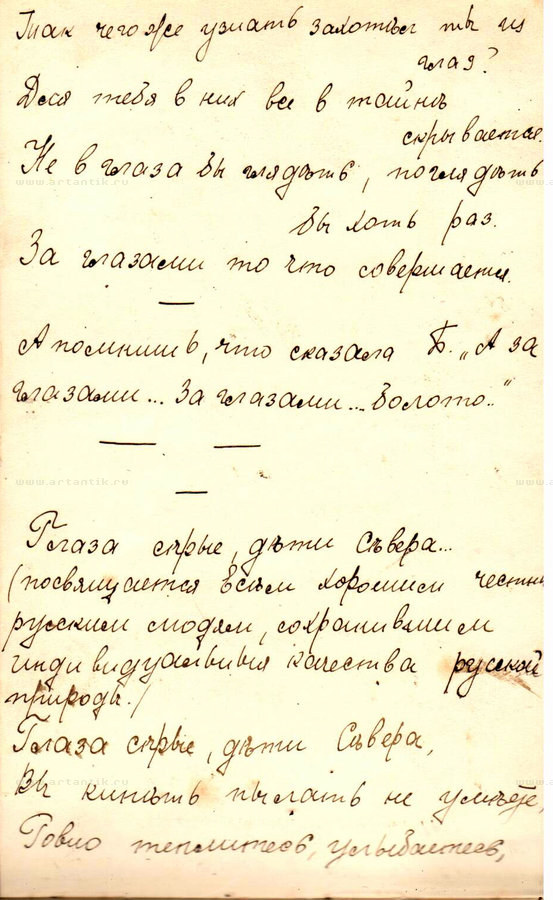 Такъ чего же узнать захотѣлъ ты из
глаз?
Для тебя в них все в тайнѣ
скрывается.
Не в глаза бы глядѣть, поглядѣть
бы хоть раз.
За глазами то что совершается.
А помнишь, что сказала Б. „А за
глазами... За глазами... болото.."
Глаза сѣрые, дѣти Сѣвера...
(посвящается всѣм хорошим честным
русским людям, сохранившим
индивидуальныя качества русской
природы.)
Глаза сѣрые, дѣти Сѣвера,
Вы кипѣть пылать не умѣете,
Ровно теплитесь, улыбаетесь,
www.artantik.ru